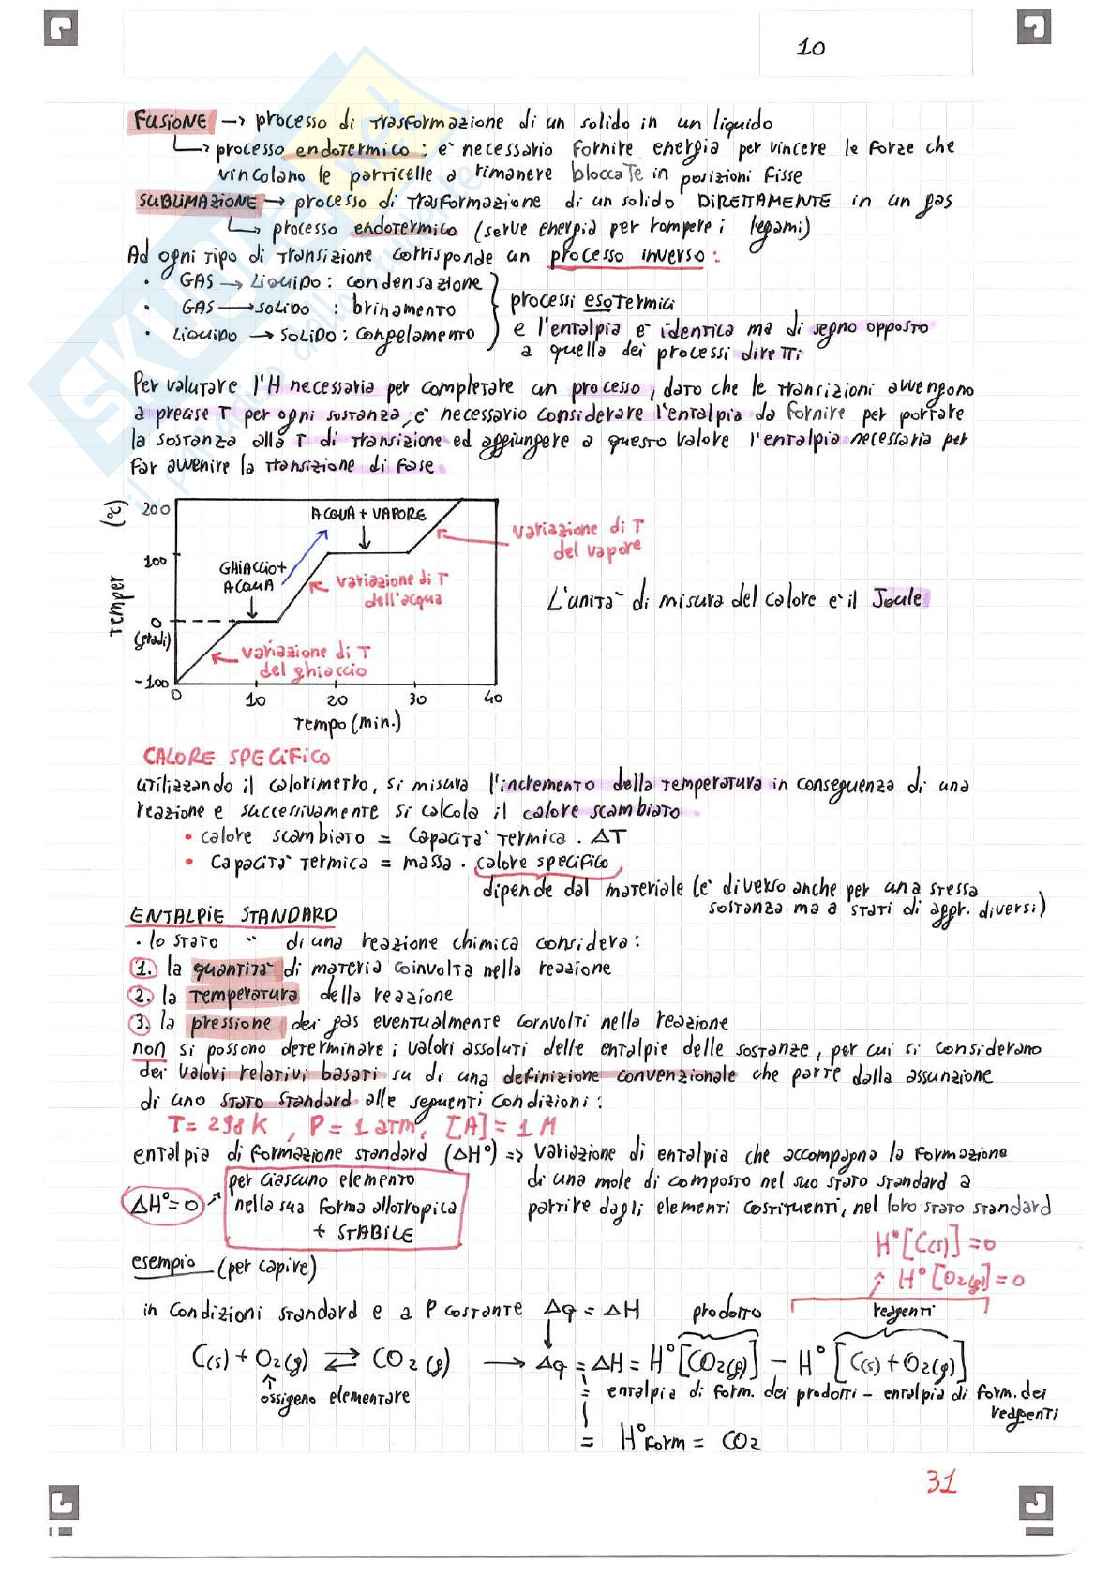 10
FUSIONE → processo di trasformazione di un solido in un liquido
↳ processo endotermico: è necessario fornire energia per vincere le forze che
vincolano le particelle a rimanere bloccate in posizioni fisse
SUBLIMAZIONE → processo di trasformazione di un solido DIRETTAMENTE in un gas
↳ processo endotermico (serve energia per rompere i legami)
Ad ogni tipo di transizione corrisponde un processo inverso:
• GAS → LIQUIDO: condensazione
• GAS → SOLIDO : brinamento
• LIQUIDO → SOLIDO: congelamento
processi esotermici
e l'entalpia è identica ma di segno opposto
a quella dei processi diretti
Per valutare l'H necessaria per completare un processo, dato che le transizioni avvengono
a precise T per ogni sostanza, è necessario considerare l'entalpia da fornire per portare
la sostanza alla T di transizione ed aggiungere a questo valore l'entalpia necessaria per
far avvenire la transizione di fase
Temper (gradi) (°C)
200
100
0
-100
0 10 20 30 40
Tempo (min.)
ACQUA + VAPORE
GHIACCIO+
ACQUA
variazione di T
del vapore
variazione di T
dell'acqua
variazione di T
del ghiaccio
L'unità di misura del calore è il Joule
CALORE SPECIFICO
utilizzando il calorimetro, si misura l'incremento della temperatura in conseguenza di una
reazione e successivamente si calcola il calore scambiato
• calore scambiato = capacità termica . ΔT
• capacità termica = massa . calore specifico
dipende dal materiale (è diverso anche per una stessa
sostanza ma a stati di aggr. diversi)
ENTALPIE STANDARD
• lo stato " di una reazione chimica considera:
1. la quantità di materia coinvolta nella reazione
2. la temperatura della reazione
3. la pressione dei gas eventualmente coinvolti nella reazione
non si possono determinare i valori assoluti delle entalpie delle sostanze, per cui si considerano
dei valori relativi basati su di una definizione convenzionale che parte dalla assunzione
di uno stato standard alle seguenti condizioni:
T= 298 K , P= 1 atm, [A]= 1 M
entalpia di formazione standard (ΔH°) => variazione di entalpia che accompagna la formazione
di una mole di composto nel suo stato standard a
partire dagli elementi costituenti, nel loro stato standard
ΔH°=0
per ciascuno elemento
nella sua forma allotropica
+ STABILE
H°[C(s)]=0
H°[O2(g)]=0
esempio (per capire)
in condizioni standard e a P costante Δq = ΔH
prodotto
reagenti
C(s) + O2(g) ⇄ CO2(g) → Δq = ΔH = H°[CO2(g)] − H°[C(s) + O2(g)]
ossigeno elementare
= entalpia di form. dei prodotti − entalpia di form. dei
reagenti
= H°form = CO2
31